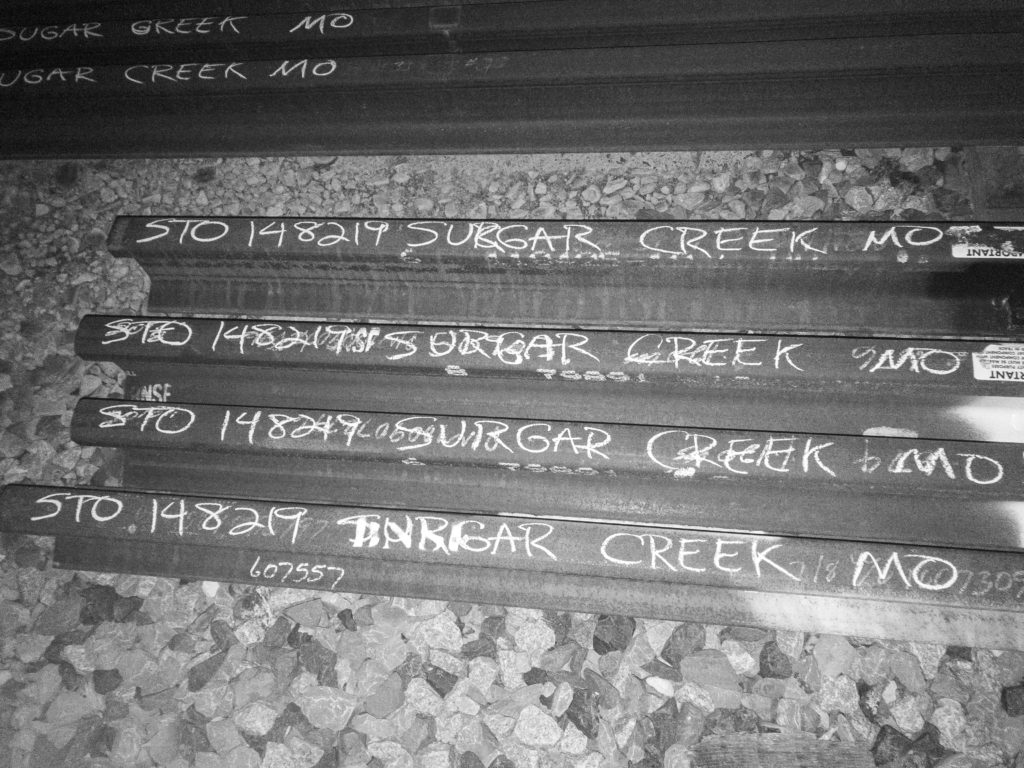 SUGAR CREEK MO
SUGAR CREEK MO
STO 148219 SURGAR CREEK MO
IMPORTANT
STO 148219 SURGAR CREEK MO
NSF
STO 148219 SURGAR CREEK MO
STO 148219 RGAR CREEK MO
607557